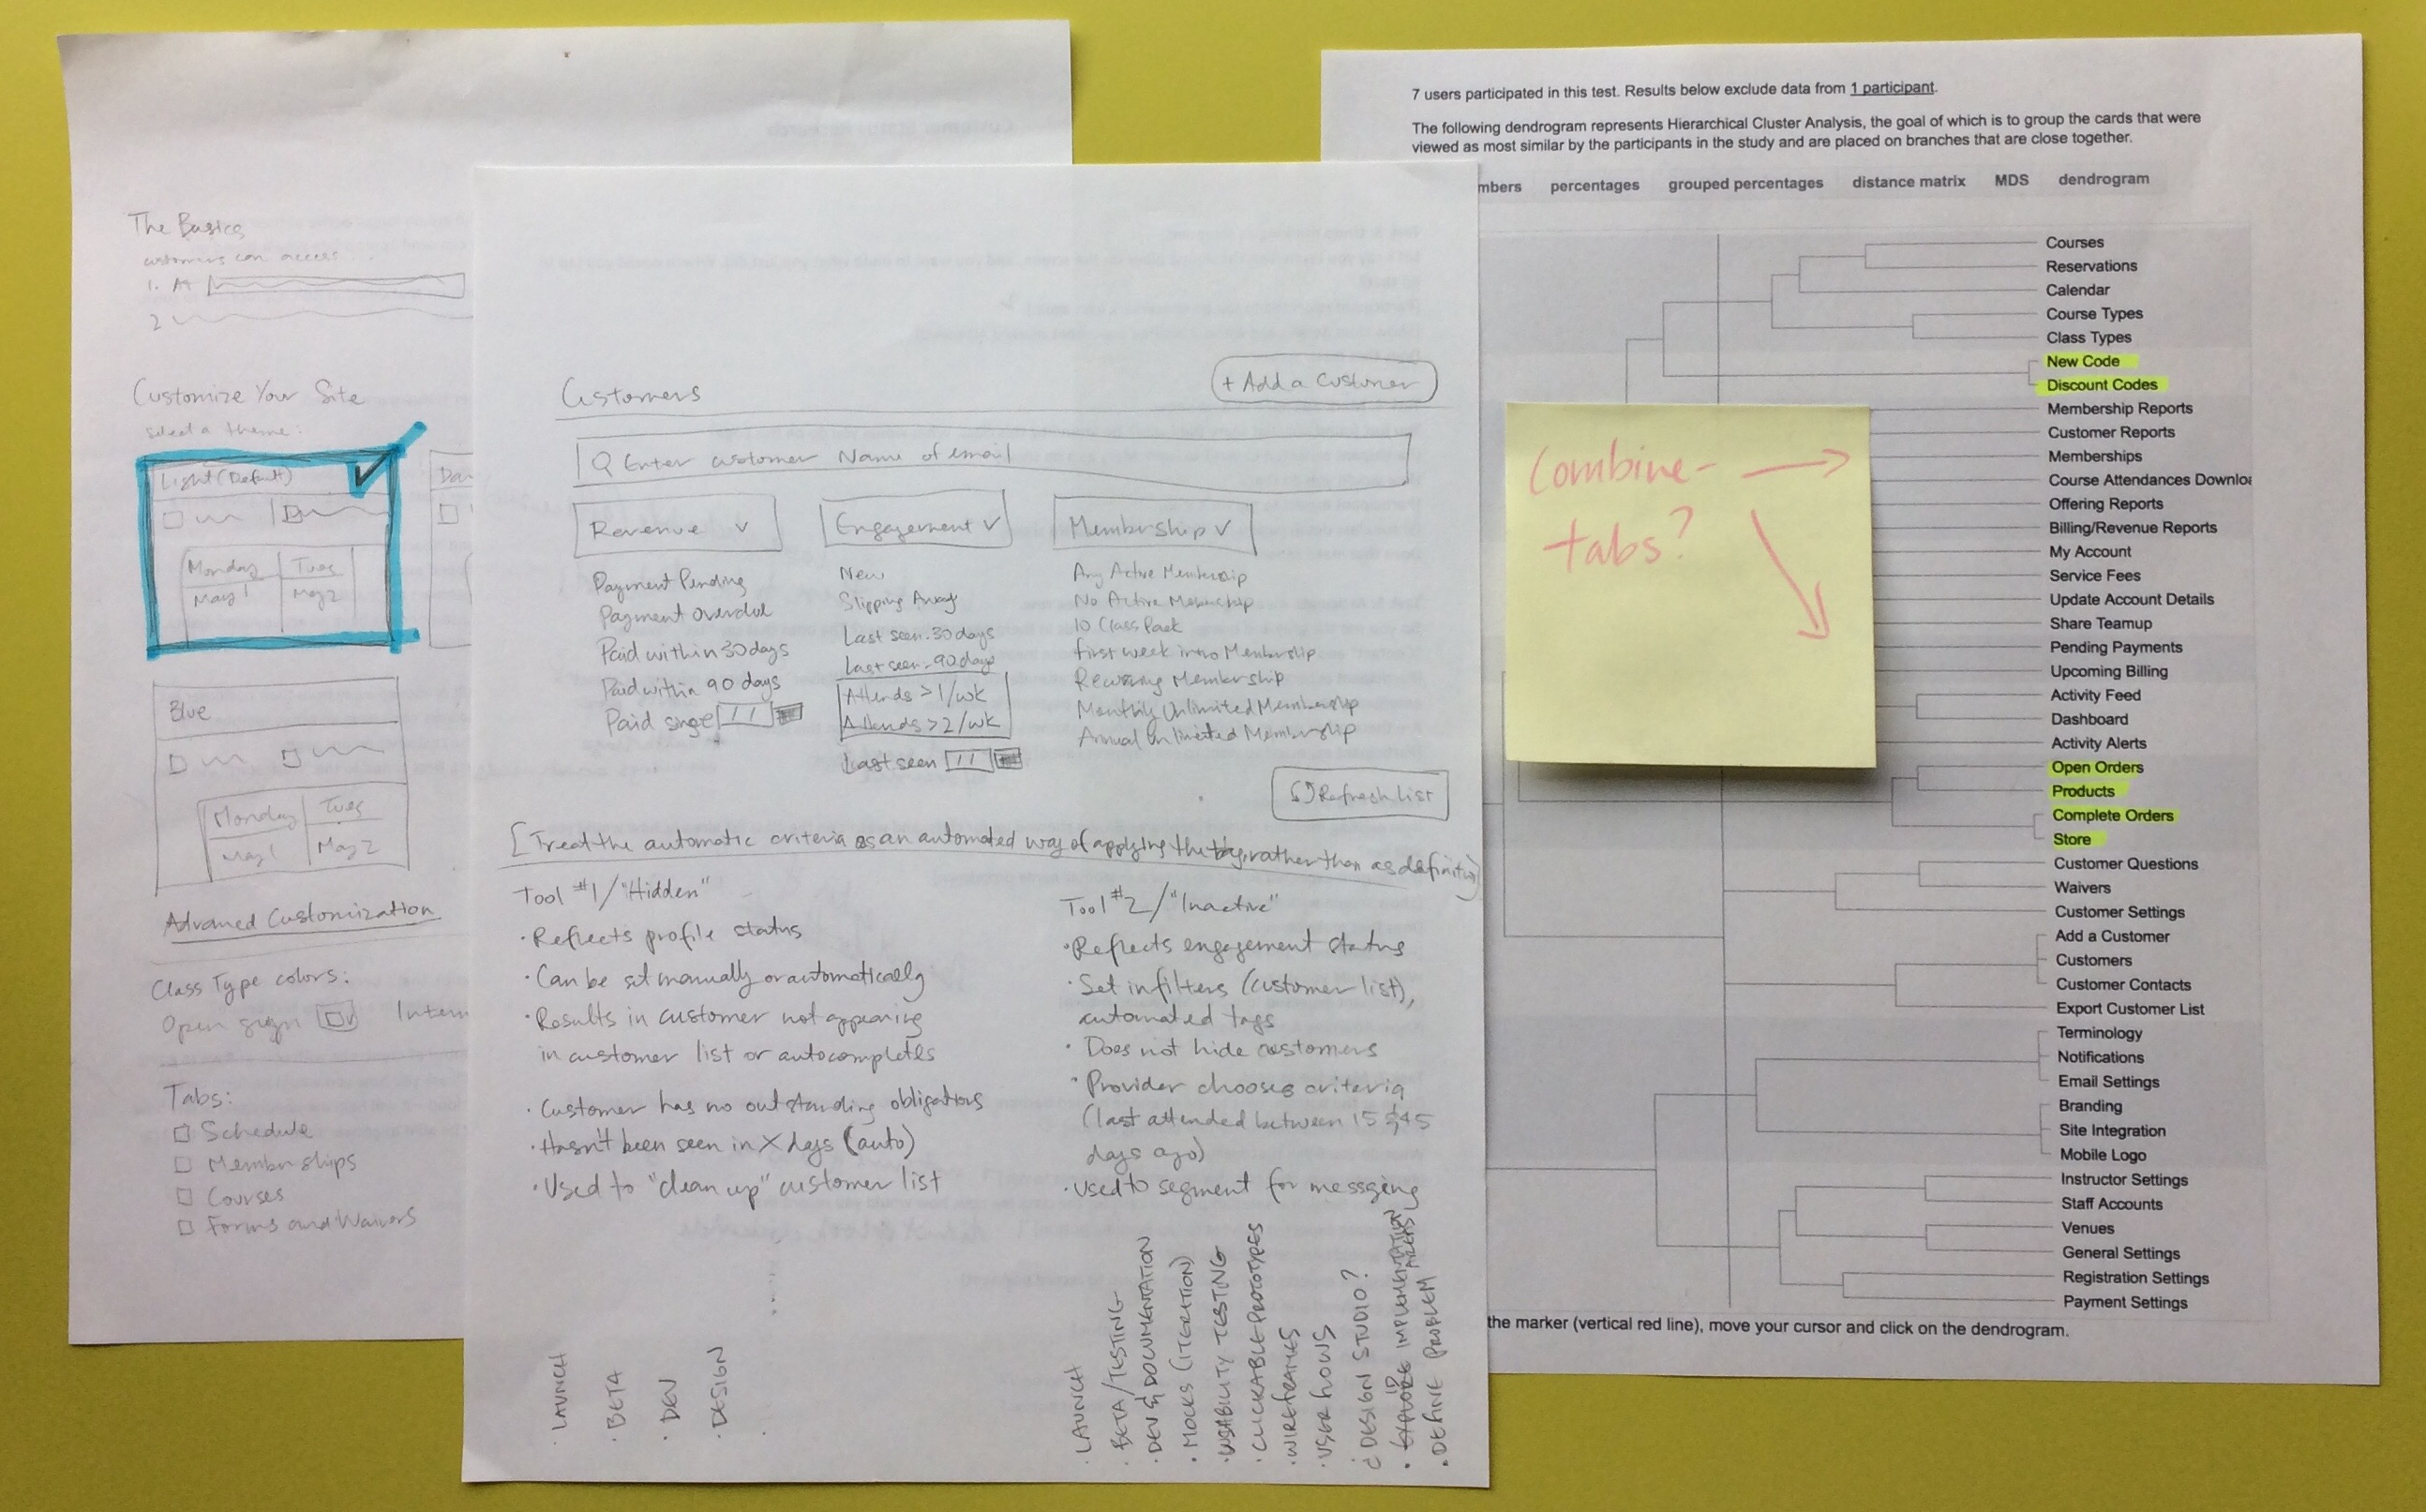 The Basics
customers can access...
1. A
2
Customize Your Site
select a theme:
Light (Default)
Monday Tues
May 1 May 2
Blue
Monday Tues
May 1 May 2
Advanced Customization
Class Type colors:
Open gym
Tabs:
Schedule
Memberships
Courses
Forms and Waivers
Customers
+ Add a Customer
Enter customer Name of email
Revenue
Payment Pending
Payment overdue
Paid within 30 days
Paid within 90 days
Paid since
Engagement
New
Slipping Away
Last seen - 30 days
Last seen - 90 days
Attends > 1/wk
Attends > 2/wk
Last seen
Membership
Any Active Membership
No Active Membership
10 Class Pack
first week intro Membership
Recurring Membership
Monthly Unlimited Membership
Annual Unlimited Membership
Refresh list
[Treat the automatic criteria as an automated way of applying the tag, rather than as
Tool #1/"Hidden"
· Reflects profile status
· Can be set manually or automatically
· Results in customer not appearing
in customer list or autocompletes
· Customer has no outstanding obligations
· Hasn't been seen in X days (auto)
· Used to "clean up" customer list
Tool #2/"Inactive"
· Reflects engagement status
· Set in filters (customer list),
automated tags
· Does not hide customers
· Provider chooses criteria
(last attended between 15 & 45
days ago)
· Used to segment for messging
· LAUNCH
· BETA
· DEV
· DESIGN
· LAUNCH
· BETA/TESTING
· DEV & DOCUMENTATION
· MOCKS (ITERATION)
· USABILITY TESTING
· CLICKABLE PROTOTYPES
· WIREFRAMES
· USER FLOWS
¿ DESIGN STUDIO?
· ID IMPLEMENTATION AREAS
· DEFINE PROBLEM
7 users participated in this test. Results below exclude data from 1 participant.
The following dendrogram represents Hierarchical Cluster Analysis, the goal of which is to group the cards that were
viewed as most similar by the participants in the study and are placed on branches that are close together.
mbers percentages grouped percentages distance matrix MDS dendrogram
Combine-
tabs?
Courses
Reservations
Calendar
Course Types
Class Types
New Code
Discount Codes
Membership Reports
Customer Reports
Memberships
Course Attendances Downloa
Offering Reports
Billing/Revenue Reports
My Account
Service Fees
Update Account Details
Share Teamup
Pending Payments
Upcoming Billing
Activity Feed
Dashboard
Activity Alerts
Open Orders
Products
Complete Orders
Store
Customer Questions
Waivers
Customer Settings
Add a Customer
Customers
Customer Contacts
Export Customer List
Terminology
Notifications
Email Settings
Branding
Site Integration
Mobile Logo
Instructor Settings
Staff Accounts
Venues
General Settings
Registration Settings
Payment Settings
the marker (vertical red line), move your cursor and click on the dendrogram.